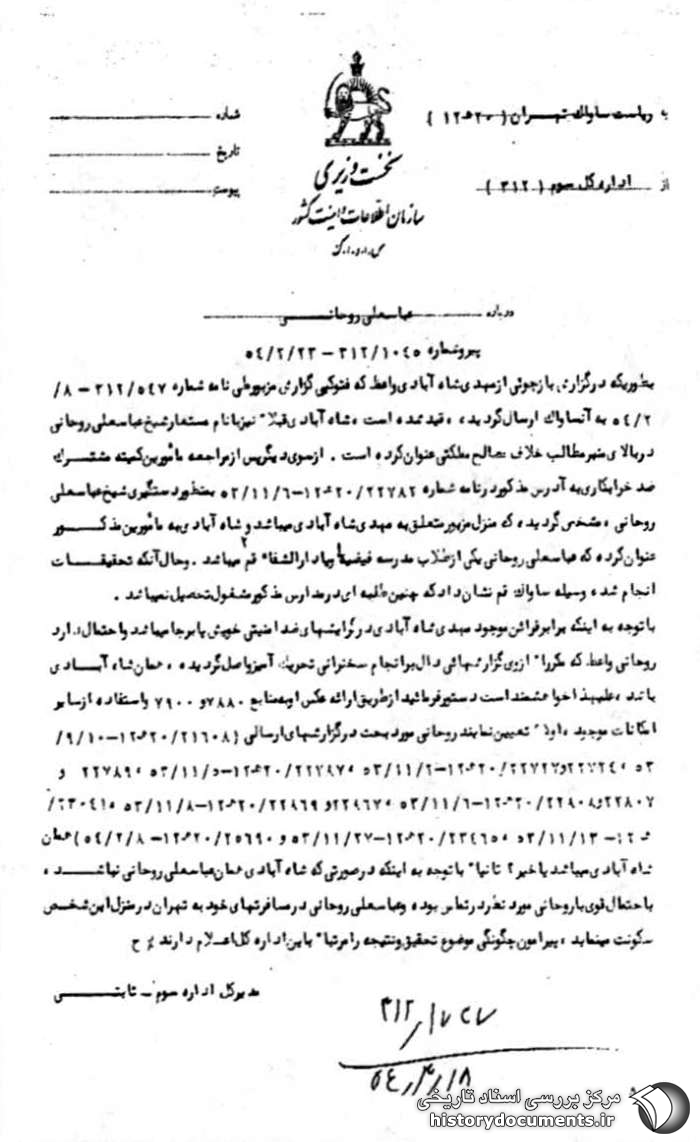 به ریاست ساواك تهران ( ۲۰ ه‍ ۱۲ )
از اداره كل سوم ( ۳۱۲ )
نخست وزیری
سازمان اطلاعات و امنیت کشور
شماره
تاریخ
پیوست
درباره عباسعلی روحانی
پیرو شماره ۳۱۲/۱۰٤٥ – ٥٤/۲/۲۳
بطوریکه در گزارش بازجوئی از مهدی شاه آبادی واعظ که فتوکپی گزارش مزبور طی نامه شماره ۳۱۲/٥٤۷ – ۸/
٥٤/۲ به آنساواك ارسال گردیده ، قید شده است ، شاه آبادی قبلا" نیز با نام مستعار شیخ عباسعلی روحانی
در بالای منبر مطالب خلاف مصالح مملکتی عنوان کرده است . از سوی دیگر پس از مراجعه مأمورین کمیته مشترك
ضد خرابکاری به آدرس مذکور در نامه شماره ۲۲۷۸۲/۲۰ ه‍ ۱۲–٥۳/۱۱/٦ بمنظور دستگیری شیخ عباسعلی
روحانی ، مشخص گردیده که منزل مزبور متعلق به مهدی شاه آبادی میباشد و شاه آبادی به مأمورین مذکور
عنوان کرده که عباسعلی روحانی یکی از طلاب مدرسه فیضیه و یا دارالشفا" قم میباشد . و حال آنکه تحقیقات
انجام شده وسیله ساواك قم نشان داد که چنین طلبه ای در مدارس مذکور مشغول تحصیل نمیباشد .
با توجه به اینکه برابر قرائن موجود مهدی شاه آبادی در گرایشهای ضد امنیتی خویش پابرجا میباشد و احتمال دارد
روحانی واعظ که مکررا" از وی گزارشهائی دال بر انجام سخنرانی تحریك آمیز واصل گردیده ، همان شاه آبادی
باشد ، علیهذا خواهشمند است دستور فرمائید از طریق ارائه عکس او به منابع ۷۸۸۰ و ۷۹۰۰ و استفاده از سایر
امکانات موجود ، اولا" تعیین نمایند روحانی مورد بحث در گزارشهای ارسالی ( ۲۱٦۰۸/۲۰ ه‍ ۱۲–۹/۱۰/
٥۳ ، ۲۲۷۲٤ و ۲۲۷۲۷/۲۰ ه‍ ۱۲–٥۳/۱۱/٦ ، ۲۲۷۸۷/۲۰ ه‍ ۱۲–٥۳/۱۱/٥ ، ۲۲۷۸۹ و
۲۲۸۰۷ و ۲۲۸۰۸/۲۰ ه‍ ۱۲–٥۳/۱۱/٦ ، ۲۲۹٦۷ و ۲۲۸٦۹/۲۰ ه‍ ۱۲–٥۳/۱۱/۸ ، ۲۳۰٤۱/
ه‍ ۱۲–٥۳/۱۱/۱۳ ، ۲۳٤٦٥/۲۰ ه‍ ۱۲–٥۳/۱۱/۲۷ و ۲٥٦۹۰/۲۰ ه‍ ۱۲–٥٤/۲/۸ ) همان
شاه آبادی میباشد یا خیر ؟ ثانیا" با توجه به اینکه در صورتی که شاه آبادی همان عباسعلی روحانی نباشد ،
با احتمال قوی با روحانی مورد نظر در تماس بوده و عباسعلی روحانی در مسافرتهای خود به تهران در منزل این شخص
سکونت مینماید ، پیرامون چگونگی موضوع تحقیق و نتیجه را مرتبا" باین اداره کل اعلام دارند ٪ ح
مدیر کل اداره سوم – ثابتی
۳۱۲/۱۷۲۷
٥٤/۳/۱۸
مرکز بررسی اسناد تاریخی
historydocuments.ir